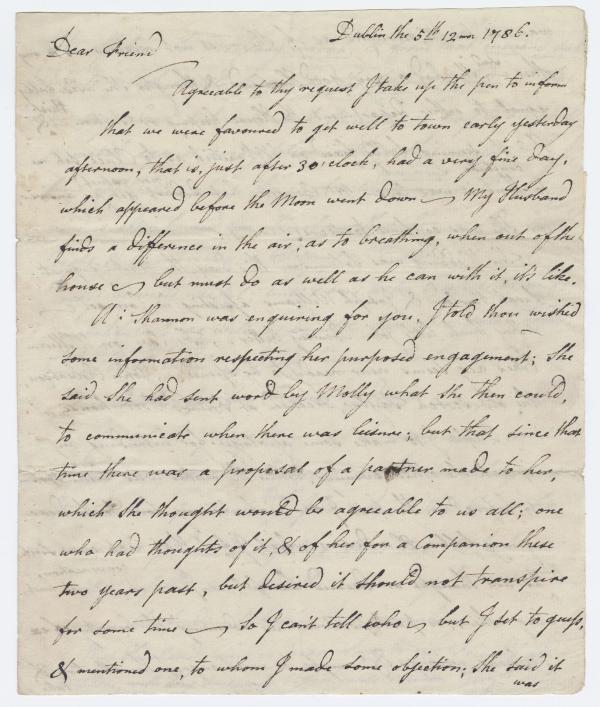 Dublin the 5th 12mo 1786.
Dear Friend
Agreeable to thy request I take up the pen to inform
that we were favoured to get well to town early yesterday
afternoon, that is, just after 3 o'clock, had a very fine day,
which appeared before the Moon went down — My Husband
finds a difference in the air, as to breathing, when out of the
house — but must do as well as he can with it, it's like.
A: Shannon was enquiring for you, I told thou wished
some information respecting her purposed engagement; She
said She had sent word by Molly what She then could,
to communicate when there was leisure; but that since that
time there was a proposal of a partner made to her,
which She thought would be agreeable to us all; one
who had thoughts of it, & of her for a Companion these
two years past, but desired it should not transpire
for some time — So I can't tell who — but I set to guess,
& mentioned one, to whom I made some objection; She said it
was